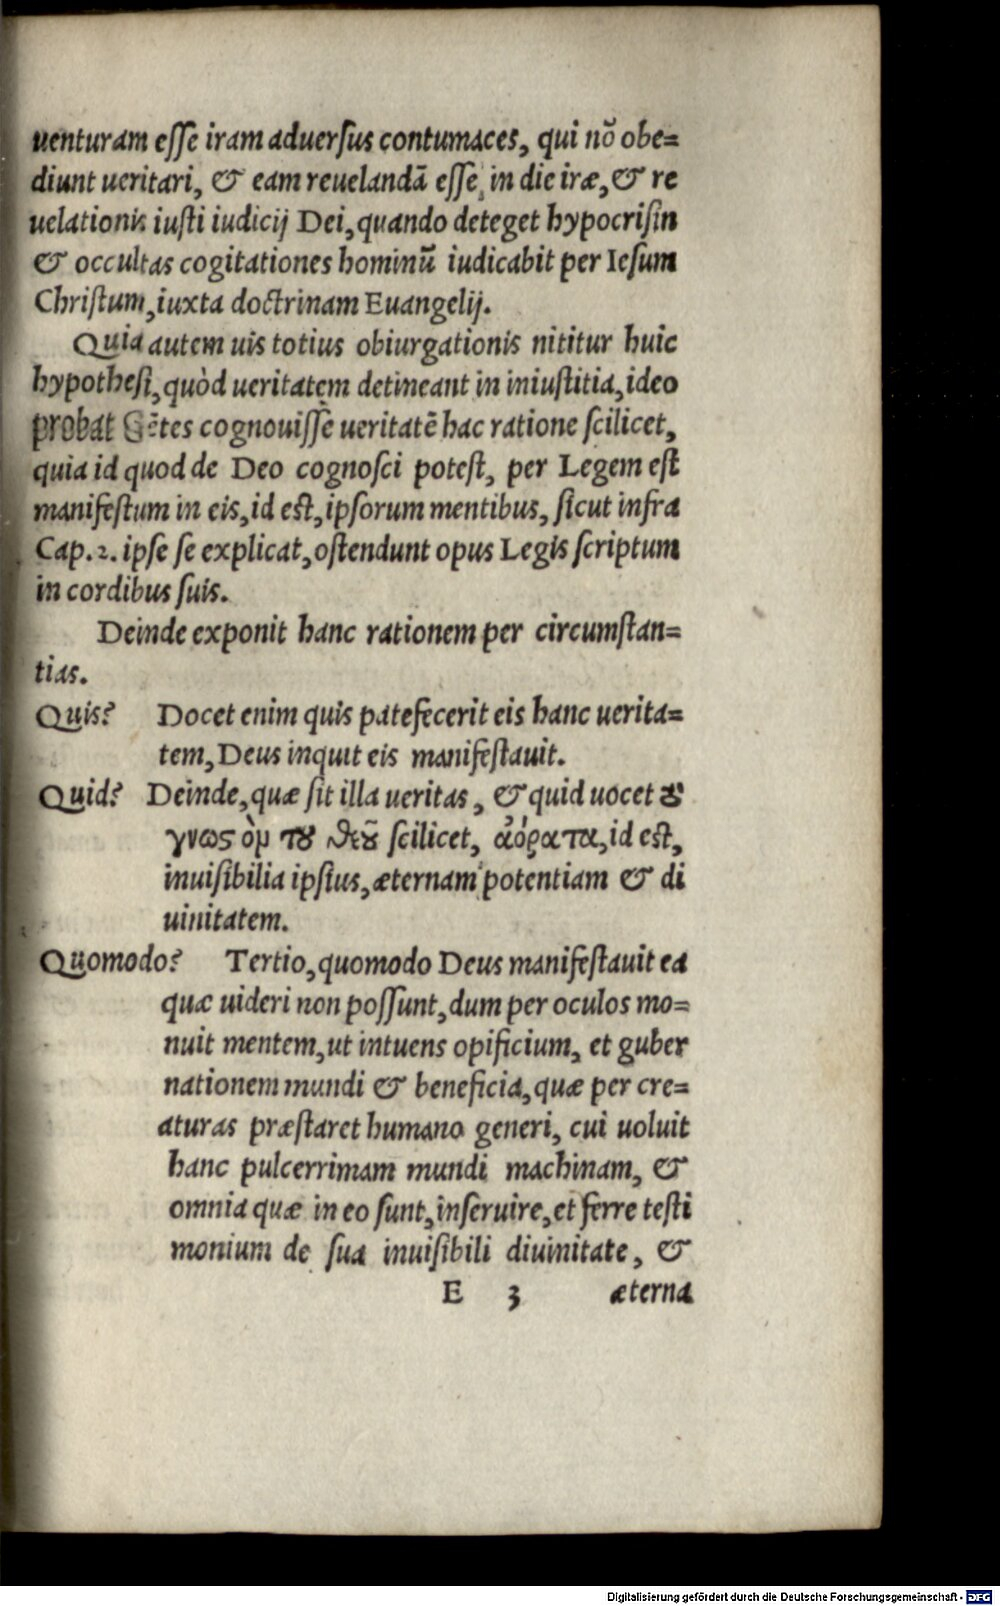 uenturam eſſe iram aduerſus contumaces, qui nō obe=
diunt ueritari, & eam reuelandā eſſe in die iræ, & re
uelationis iuſti iudicij Dei, quando deteget hypocriſin
& occultas cogitationes hominū iudicabit per Ieſum
Chriſtum, iuxta doctrinam Euangelij.
Quia autem uis totius obiurgationis nititur huic
hypotheſi, quòd ueritatem detineant in iniuſtitia, ideo
probat Gētes cognouiſſe ueritatē hac ratione ſcilicet,
quia id quod de Deo cognoſci poteſt, per Legem eſt
manifeſtum in eis, id eſt, ipſorum mentibus, ſicut infra
Cap. 2. ipſe ſe explicat, oſtendunt opus Legis ſcriptum
in cordibus ſuis.
Deinde exponit hanc rationem per circumſtan=
tias.
Quis? Docet enim quis patefecerit eis hanc uerita=
tem, Deus inquit eis manifeſtauit.
Quid? Deinde, quæ ſit illa ueritas, & quid uocet ȣ
γνως ὸμ τȣ θεȣ͂ ſcilicet, ἀόρατα, id eſt,
inuiſibilia ipſius, æternam potentiam & di
uinitatem.
Quomodo? Tertio, quomodo Deus manifeſtauit ea
quæ uideri non poſſunt, dum per oculos mo=
nuit mentem, ut intuens opificium, et guber
nationem mundi & beneficia, quæ per cre=
aturas præſtaret humano generi, cui uoluit
hanc pulcerrimam mundi machinam, &
omnia quæ in eo ſunt, inſeruire, et ferre teſti
monium de ſua inuiſibili diuinitate, &
E 3 æterna
Digitalisierung gefördert durch die Deutsche Forschungsgemeinschaft - DFG